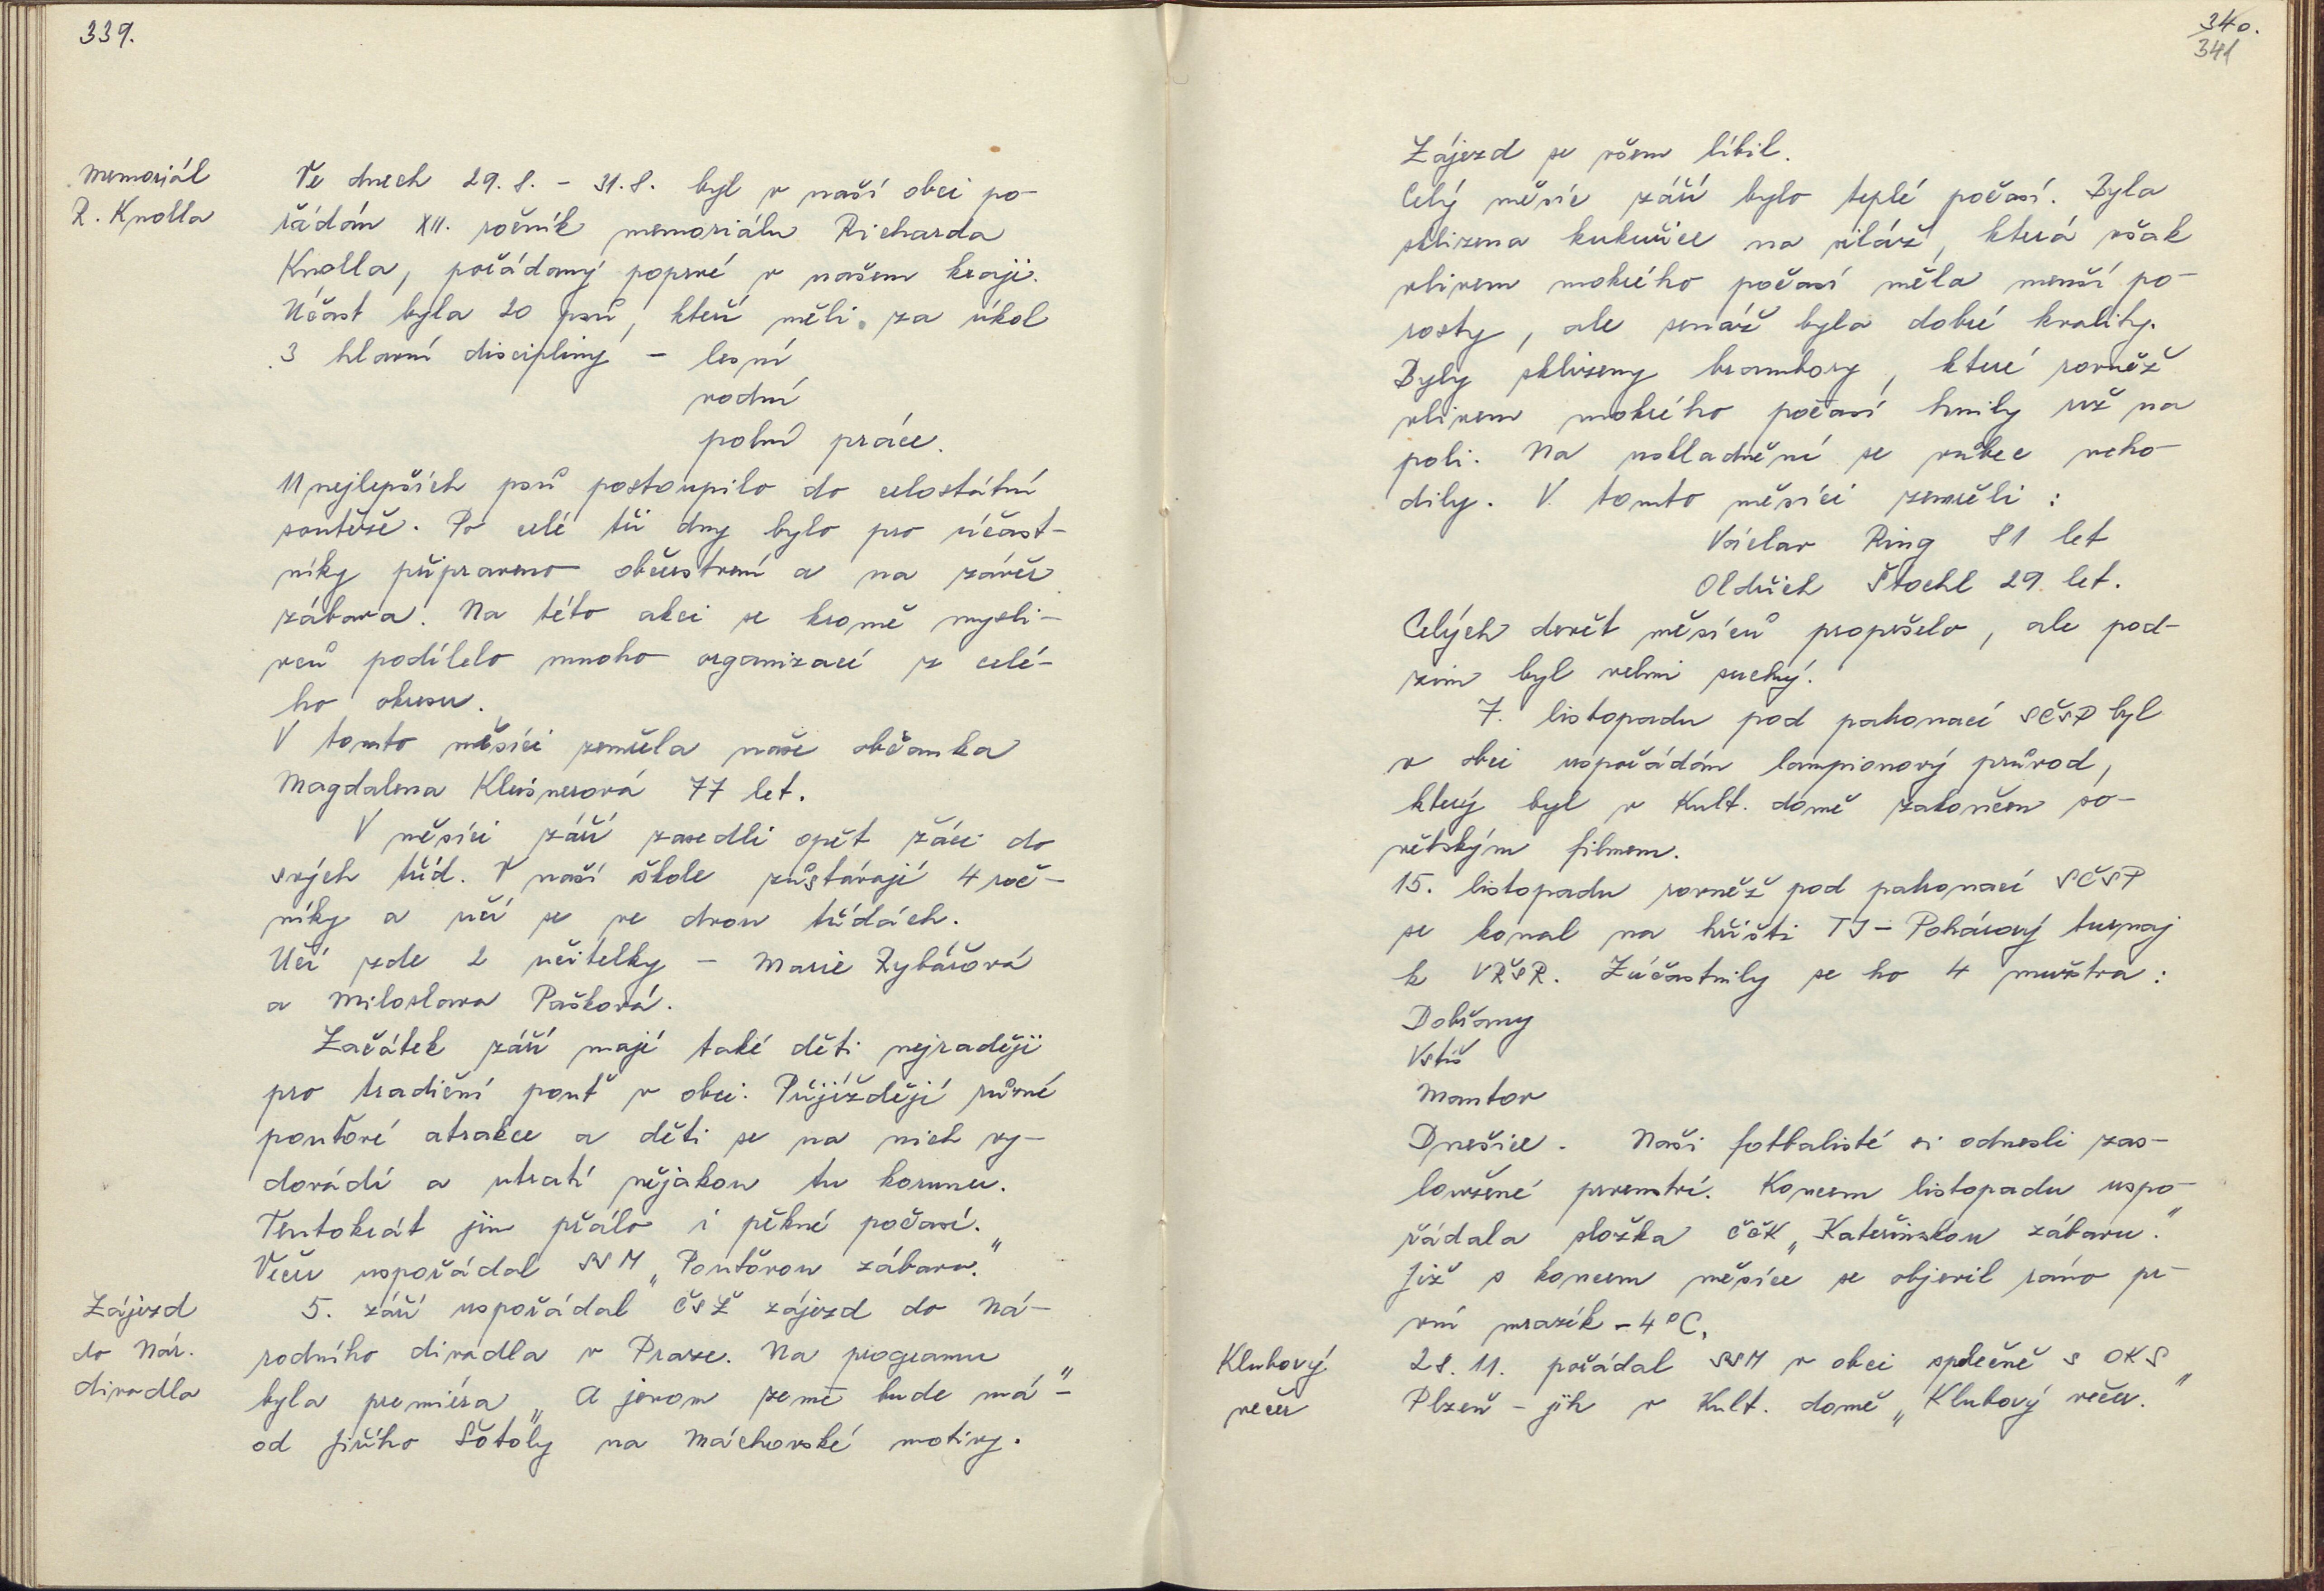 339.
Memoriál
R. Knolla
Ve dnech 29.8. - 31.8. byl v naší obci po-
řádán XII. ročník memoriálu Richarda
Knolla, pořádaný poprvé v našem kraji.
Účast byla 20 psů, kteří měli za úkol
3 hlavní disciplíny - lesní
vodní
polní práce.
11 nejlepších psů postoupilo do celostátní
soutěže. Po celé tři dny bylo pro účast-
níky připraveno občerstvení a na závěr
zábava. Na této akci se kromě mysli-
vců podílelo mnoho organizací z celé-
ho okresu.
V tomto měsíci zemřela naše občanka
Magdalena Kleisnerová 77 let.
V měsíci září zasedli opět žáci do
svých tříd. V naší škole zůstávají 4 roč-
níky a učí se ve dvou třídách.
Učí zde 2 učitelky - Marie Rybářová
a Miloslava Pašková.
Začátek září mají také děti nejraději
pro tradiční pouť v obci. Přijíždějí různé
pouťové atrakce a děti se na nich vy-
dovádí a utratí nějakou tu korunu.
Tentokrát jim přálo i pěkné počasí.
Večer uspořádal SSM „Pouťovou zábavu."
Zájezd
do Nár.
divadla
5. září uspořádal ČSŽ zájezd do Ná-
rodního divadla v Praze. Na programu
byla premiéra „A jenom země bude má" -
od Jiřího Šotoly na Máchovské motivy.
340.
341
Zájezd se všem líbil.
Celý měsíc září bylo teplé počasí. Byla
sklizena kukuřice na siláž, která však
vlivem mokrého počasí měla menší po-
rosty, ale senáž byla dobré kvality.
Byly sklizeny brambory, které rovněž
vlivem mokrého počasí hnily už na
poli. Na uskladnění se vůbec neho-
dily. V tomto měsíci zemřeli:
Václav Ring 81 let
Oldřich Štochl 29 let.
Celých devět měsíců propršelo, ale pod-
zim byl velmi suchý.
7. listopadu pod patronací SČSP byl
v obci uspořádán lampionový průvod,
který byl v Kult. domě zakončen so-
větským filmem.
15. listopadu rovněž pod patronací SČSP
se konal na hřišti TJ - Pohárový turnaj
k VŘSR. Zúčastnily se ho 4 mužstva:
Dobřany
Vstiš
Mantov
Dnešice. Naši fotbalisté si odnesli zas-
loužené prvenství. Koncem listopadu uspo-
řádala složka ČČK „Kateřinskou zábavu."
Již s koncem měsíce se objevil ráno pr-
vní mrazík -4°C.
Klubový
večer
28.11. pořádal SSM v obci společně s OKS
Plzeň - jih v Kult. domě „Klubový večer."